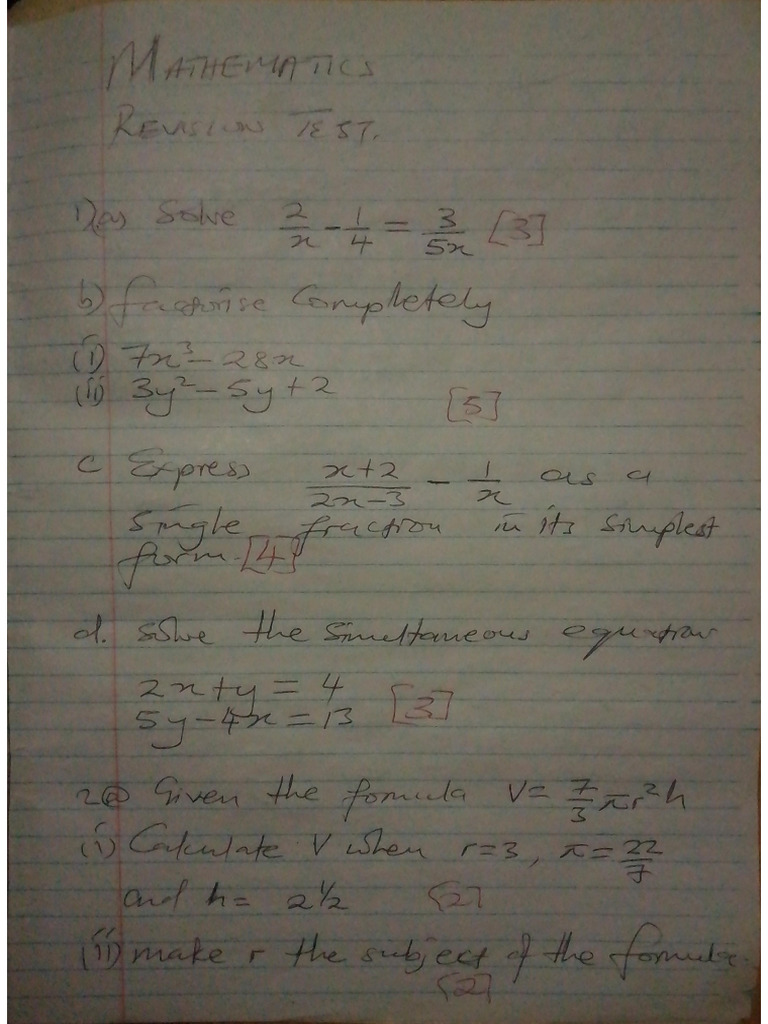 MATHEMATICS
REVISION TEST.
1)(a) Solve 2/x - 1/4 = 3/5x [3]
b) factorise Completely
(i) 7x³ - 28x
(ii) 3y² - 5y + 2 [5]
c Express x+2/2x-3 - 1/x as a
single fraction in its simplest
form. [4]
d. solve the simultaneous equation
2x + y = 4
5y - 4x = 13 [3]
2(a) Given the formula V = 7/3 πr²h
(i) Calculate V when r = 3, π = 22/7
and h = 2½ [2]
(ii) make r the subject of the formula.
[2]